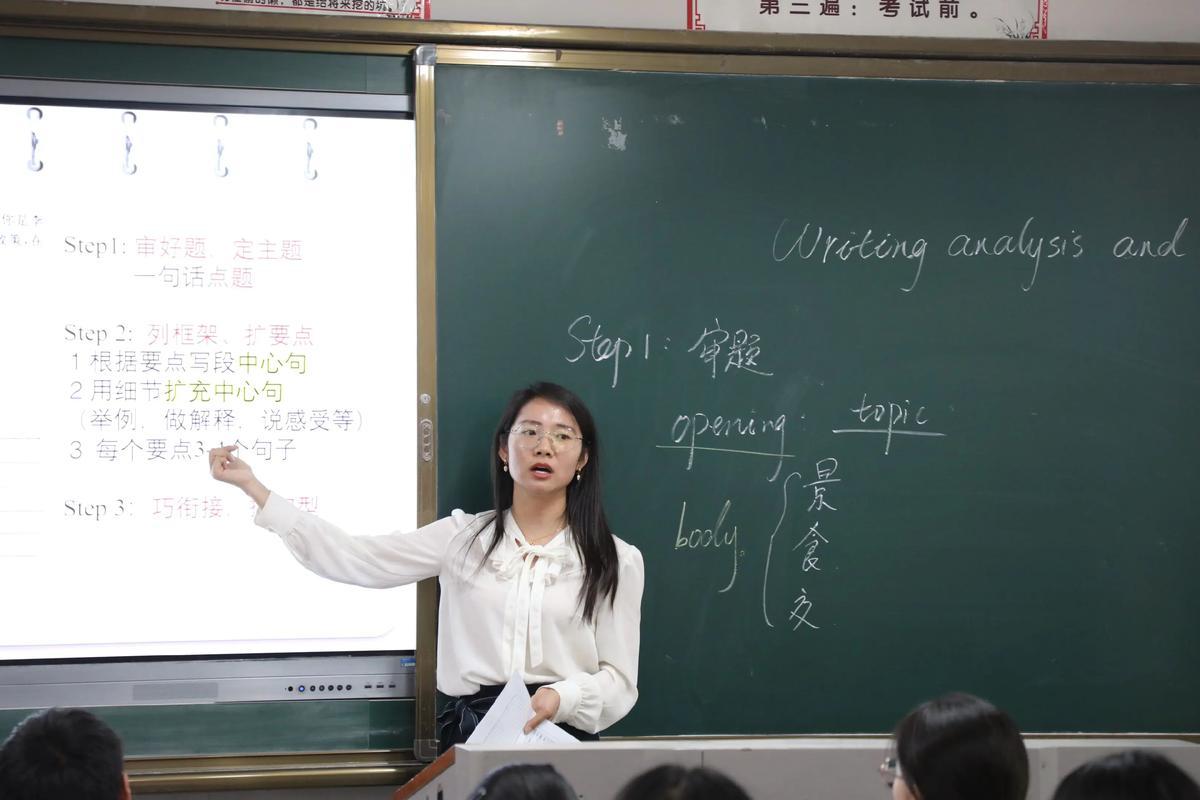 都是给将来挖的坑。
第三遍：考试前。
你是李
Step1: 审好题、定主题
一句话点题
Step 2: 列框架、扩要点
1 根据要点写段中心句
2 用细节扩充中心句
（举例、做解释、说感受等）
3 每个要点3-4个句子
Step 3: 巧衔接、型
Writing analysis and
Step 1: 审题
opening: topic
body
景
食
文